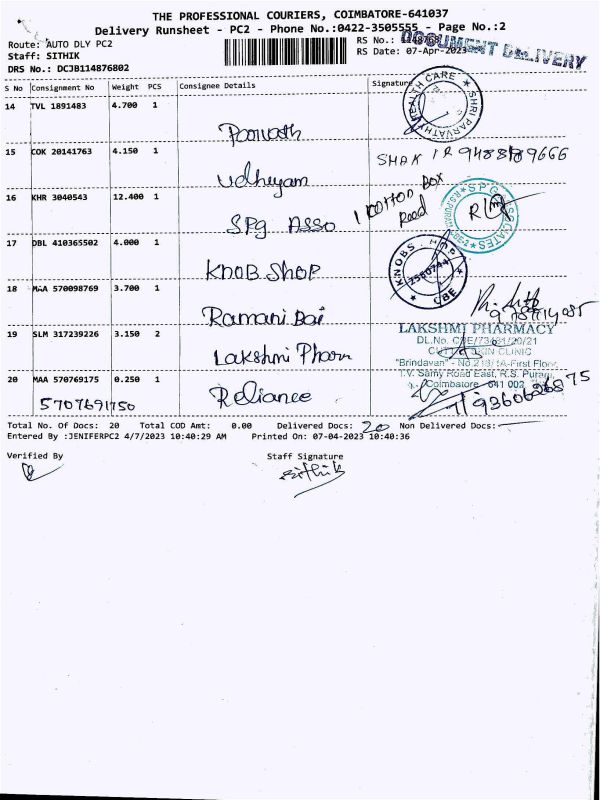 THE PROFESSIONAL COURIERS, COIMBATORE-641037
Delivery Runsheet - PC2 - Phone No.:0422-3505555 - Page No.:2
Route: AUTO DLY PC2
RS No.: 1148768
DOCUMENT DELIVERY
Staff: SITHIK
RS Date: 07-Apr-2023
DRS No.: DCJB114876802
S No Consignment No Weight PCS Consignee Details Signature
14 TVL 1891483 4.700 1
HEALTH CARE ★ SHRI PARVATHY
15 COK 20141763 4.150 1
9488189666
Udhayam
16 KHR 3040543 12.400 1
SPG Asso
1 COTTON BOX
Road
SPG ASSOCIATES ★ R.S.PURAM
17 DBL 410365502 4.000 1
KNOB SHOP
KNOBS
2560744
★ CBE ★
18 MAA 570098769 3.700 1
Ramani Bai
19 SLM 317239226 3.150 2
Lakshmi Pharm
LAKSHMI PHARMACY
DL.No. CBE/
SKIN CLINIC
"Brindavan" - No.218/1A-First Floor,
T.V. Samy Road East, R.S. Puram,
Coimbatore - 641 002
20 MAA 570769175 0.250 1
5707691750
Reliance
Total No. Of Docs: 20 Total COD Amt: 0.00 Delivered Docs: 20 Non Delivered Docs:
Entered By :JENIFERPC2 4/7/2023 10:40:29 AM Printed On: 07-04-2023 10:40:36
Verified By
Staff Signature
Sithik